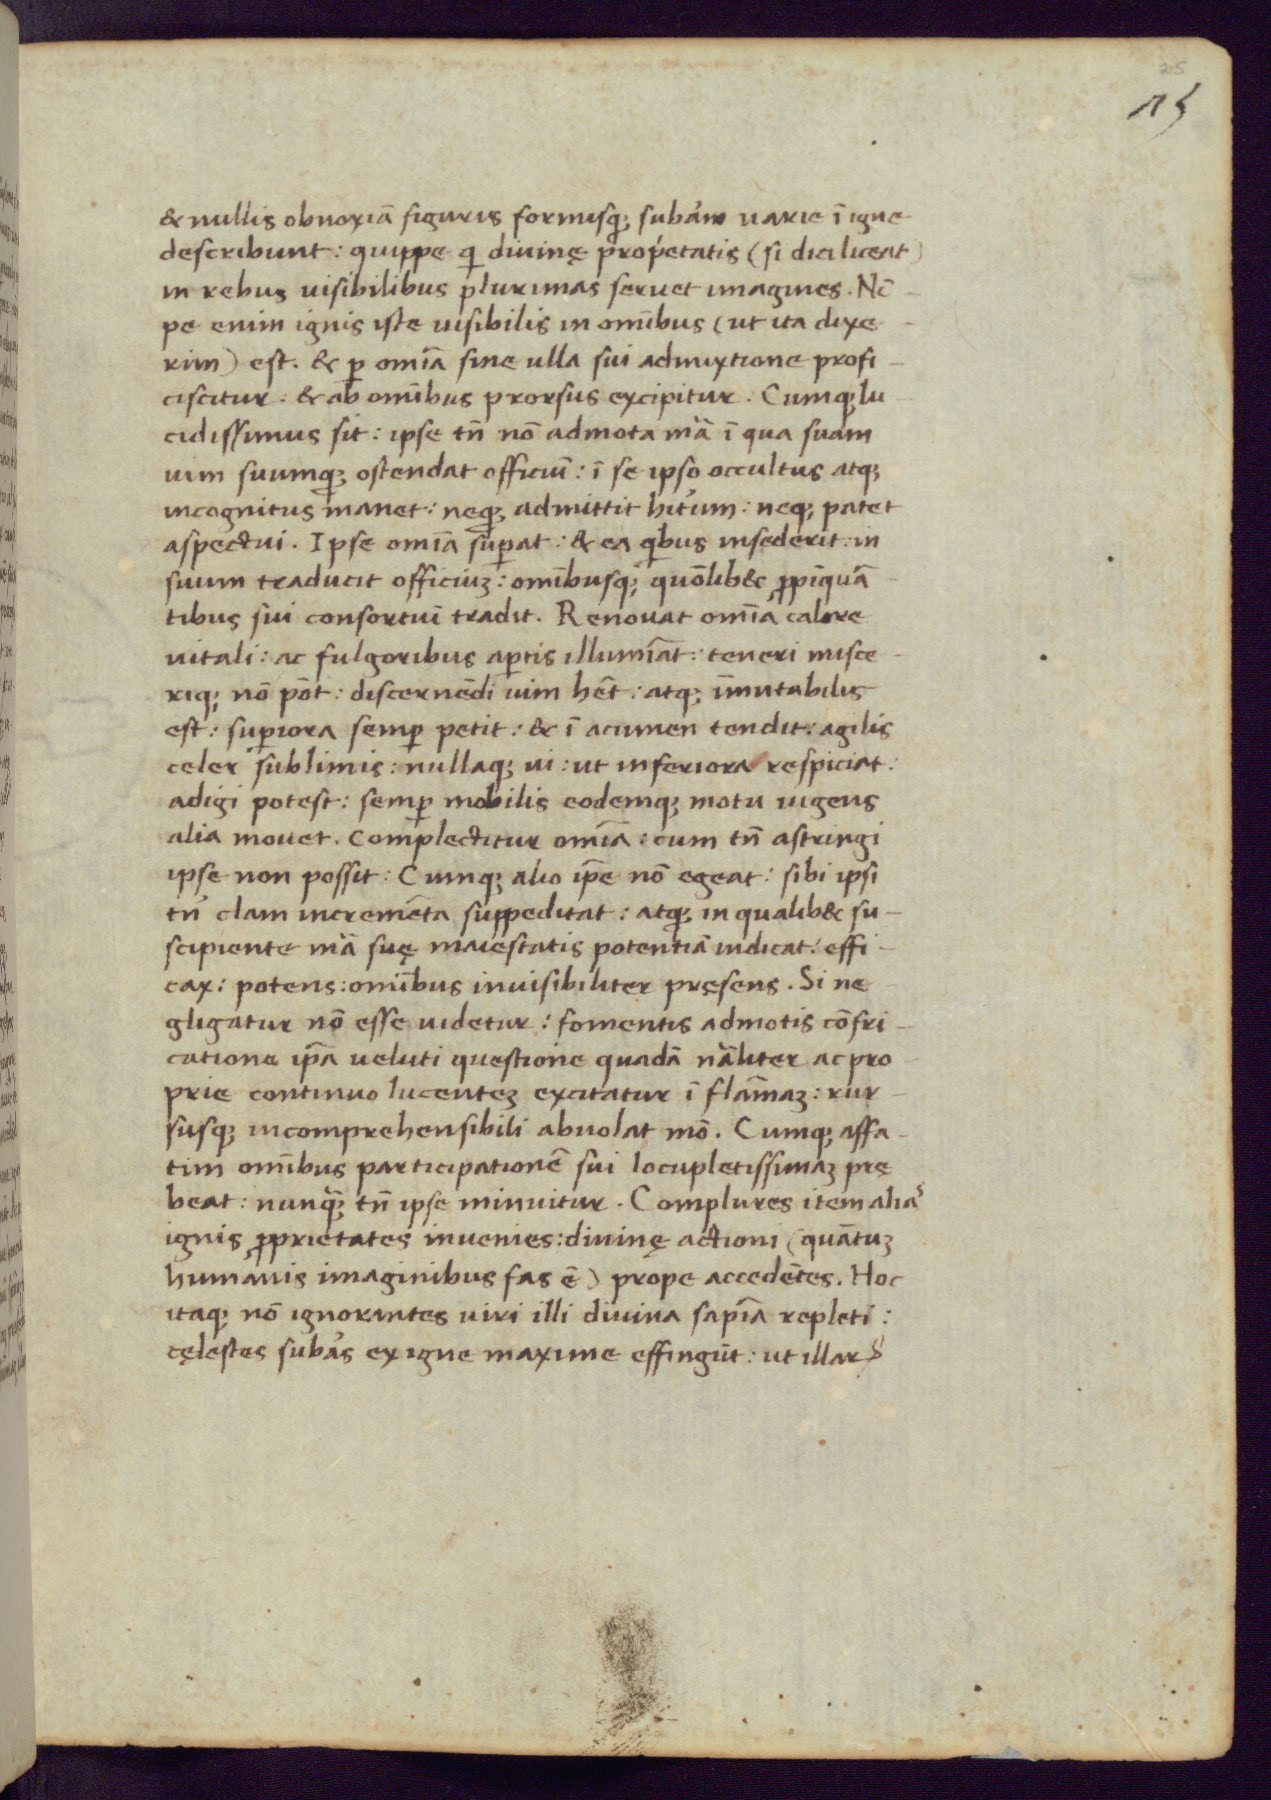 25
15
& nullis obnoxiā figuris formisq; subam̄ uarie ī igne
describunt: quippe qi diuinę propetatis (si dici liceat)
in rebus uisibilibus plurimas seruet imagines. Nē-
pe enim ignis iste uisibilis in omībus (ut ita dixe-
rim) est. & ꝑ omīa sine ulla sui admixtione profi-
ciscitur. & ab omībus prorsus excipitur. Cumq; lu-
cidissimus sit: ipse tn̄ nō admota mā ī qua suam
uim suumq; ostendat officiū: ī se ipso occultus atq;
incognitus manet: neq; admittit hitum: neq; patet
aspectui. Ipse omīa suꝑat: & ea qibus insederit: in
suum traducit officiuꝫ: omībusq; quōlib& ꝓpīquā-
tibus sui consortiū tradit. Renouat omīa calore
uitali: ac fulgoribus aꝑtis illumīat: teneri misce-
riq; nō pōt: discernēdi uim hēt: atq; īmutabilis
est: suꝑiora semꝑ petit: & ī acumen tendit: agilis
celer sublimis: nullaq; ui: ut inferiora respiciat:
adigi potest: semꝑ mobilis eodemq; motu uigens
alia mouet. Complectitur omīa: cum tn̄ astringi
ipse non possit: Cumq; alio ip̄e nō egeat: sibi ipsi
tn̄ clam incremēta suppeditat: atq; in qualib& su-
scipiente mā suę maiestatis potentiā indicat: effi-
cax: potens: omībus inuisibiliter pręsens. Si ne
gligatur nō esse uidetur: fomentis admotis cōfri-
catione ip̄a ueluti questione quadā nāliter ac pro-
prie continuo lucenteꝫ excitatur ī flāmaꝫ: rur-
susq; incomprehensibili abuolat mō. Cumq; affa-
tim omībus participationē sui locupletissimaꝫ prę
beat: nunq̄ꝫ tn̄ ipse minuitur. Complures item alias
ignis ꝓprietates inuenies: diuinę actioni (quātuꝫ
humanis imaginibus fas ē) prope accedētes. Hoc
itaq; nō ignorantes uiri illi diuina sapīa repleti:
cęlestes subās ex igne maxime effingūt: ut illaꝝ